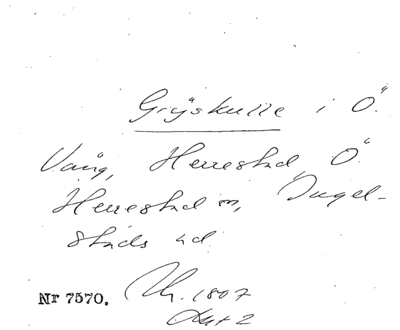 Gryskulle i Ö.
Vång, Herrestad, Ö.
Herrestad sn, Ingel-
stads hd
Nr 7570. 1807
Akt 2